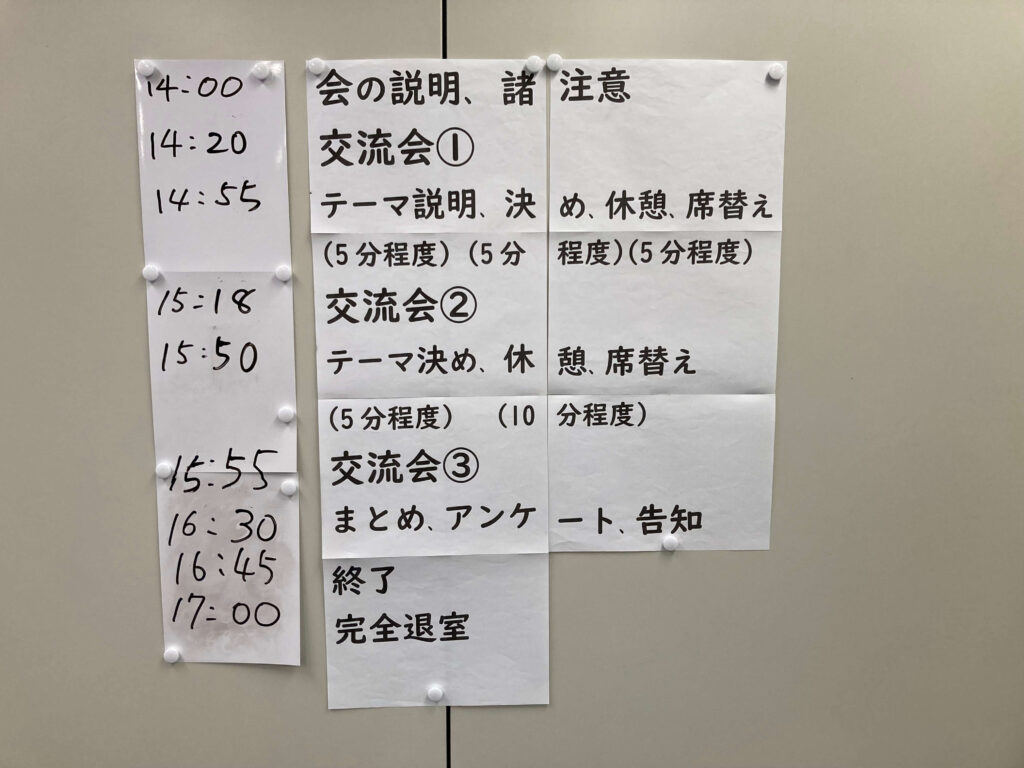 14:00 会の説明、諸注意
14:20 交流会①
14:55 テーマ説明、決め、休憩、席替え
(5分程度) (5分程度)(5分程度)
15:18 交流会②
15:50 テーマ決め、休憩、席替え
(5分程度) (10分程度)
15:55 交流会③
16:30 まとめ、アンケート、告知
16:45 終了
17:00 完全退室